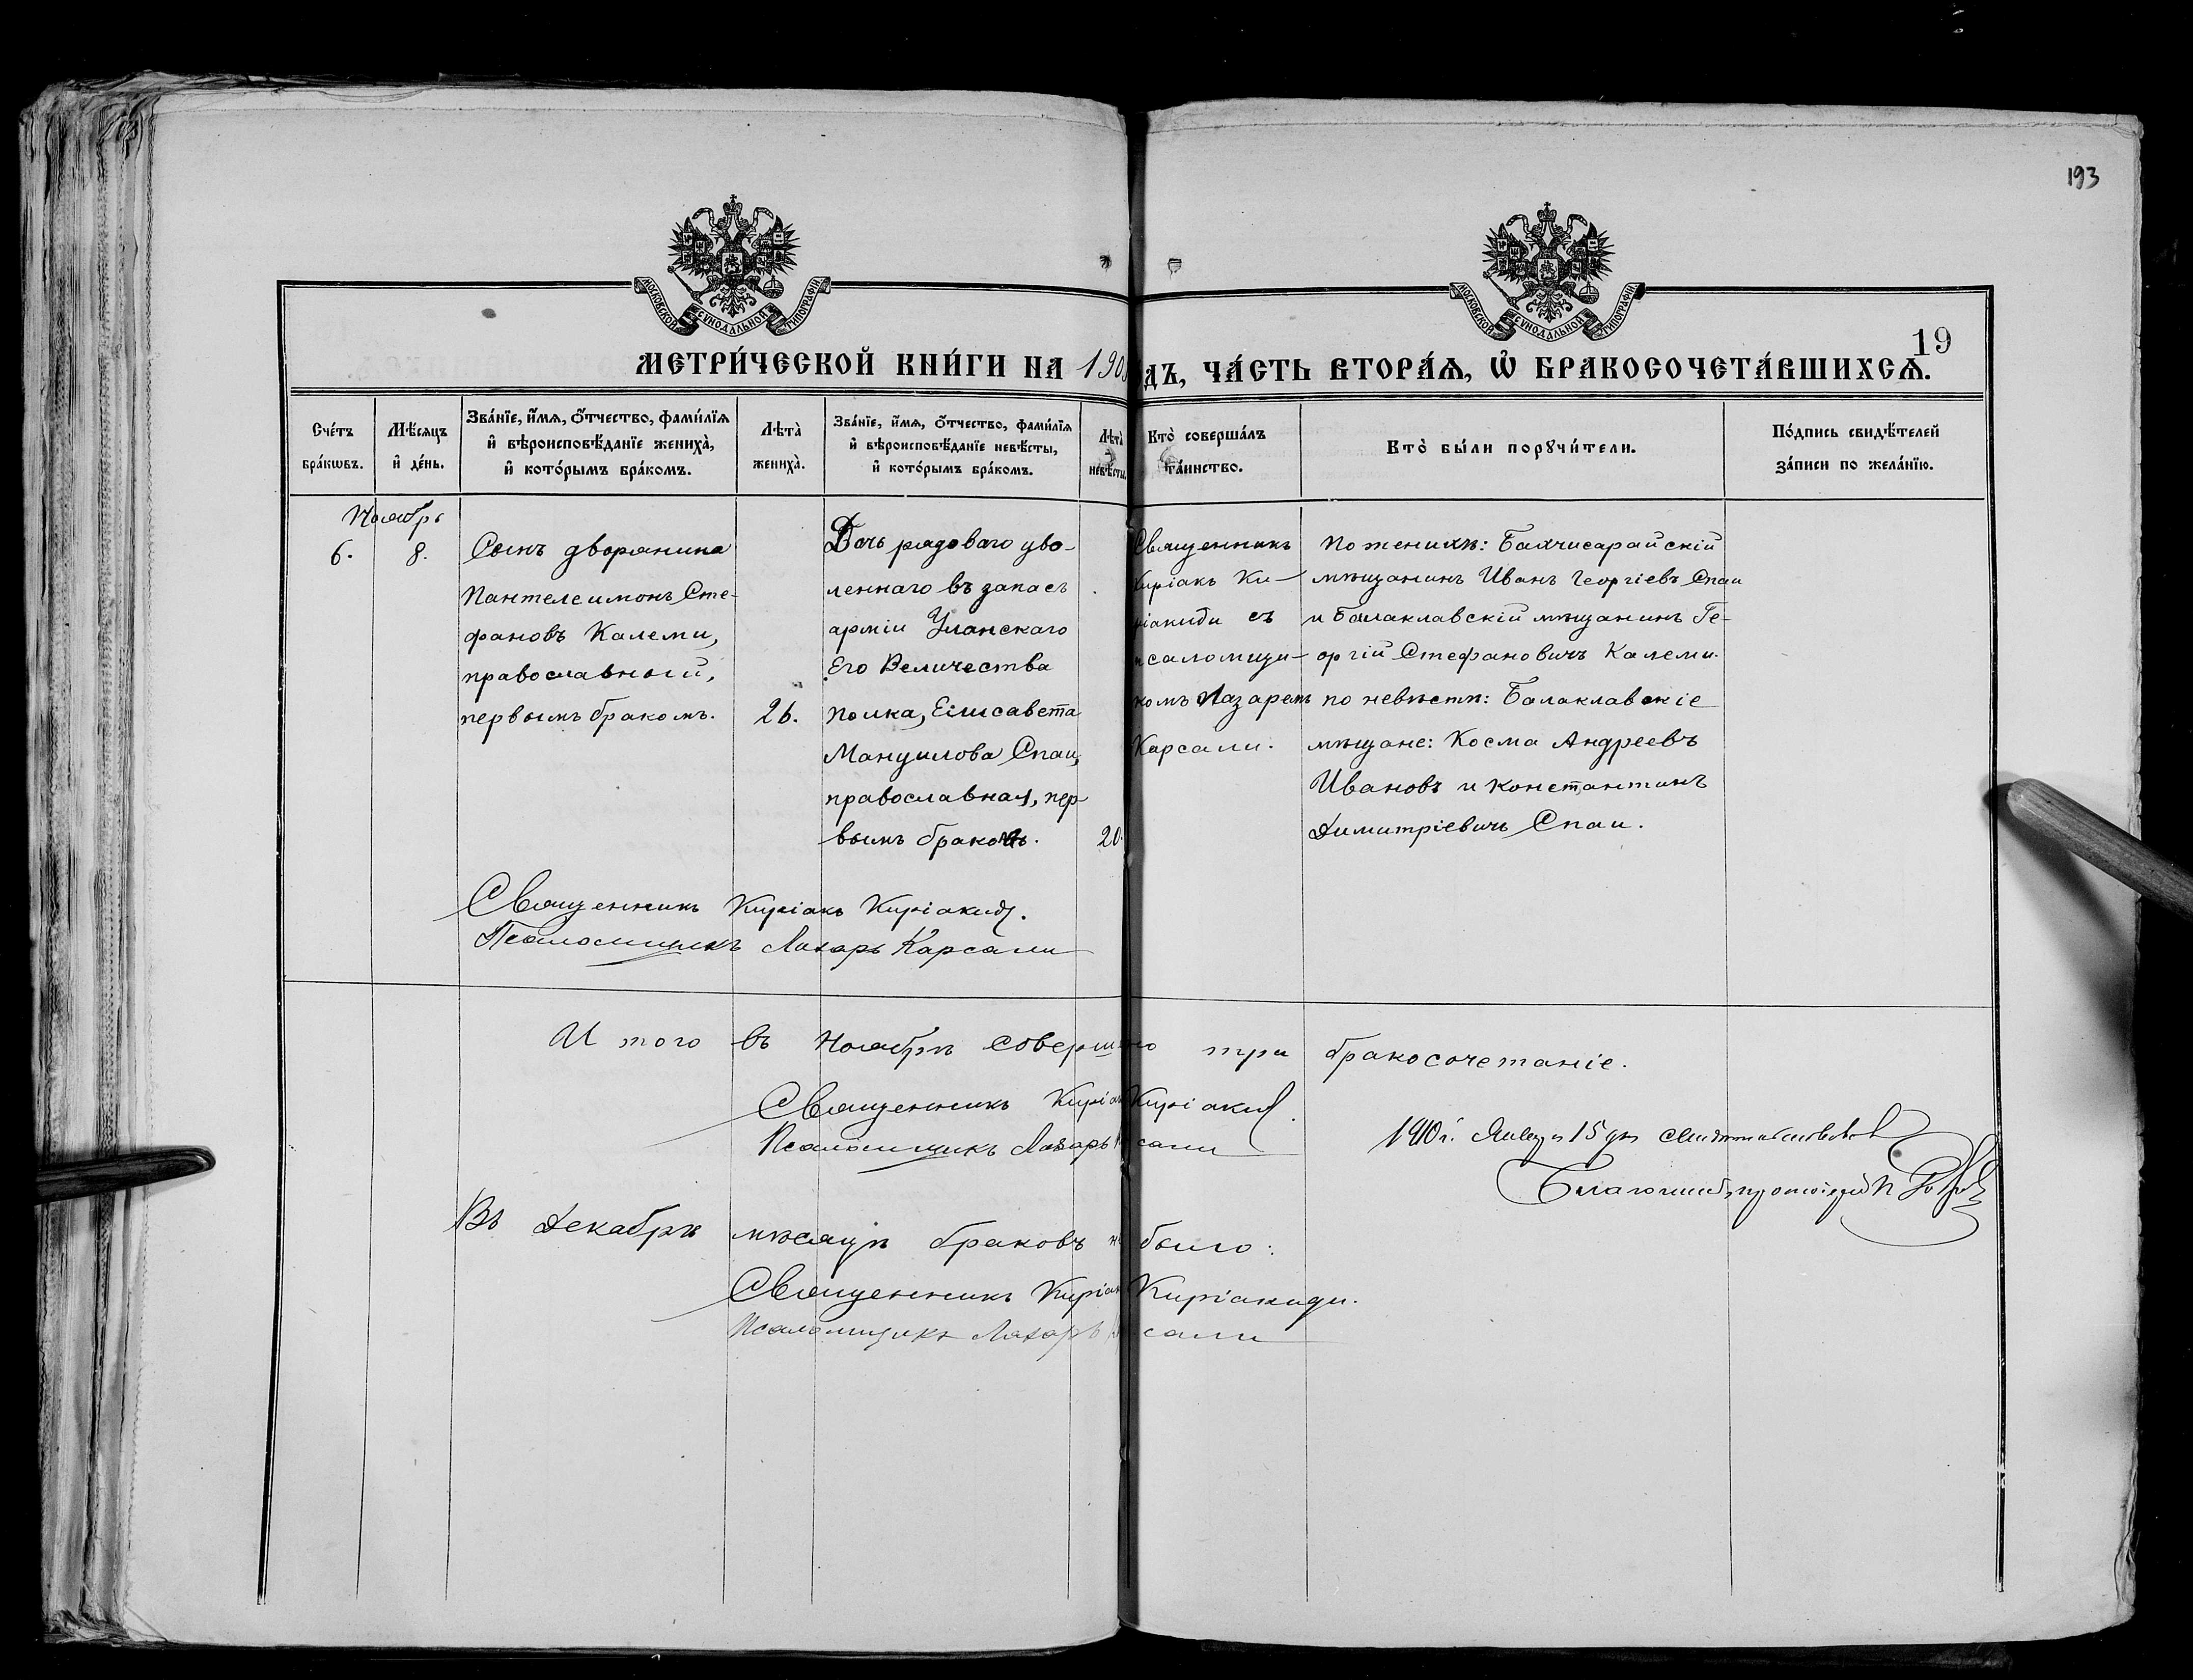 193
МОСКОВСКОЙ СѴНОДАЛЬНОЙ ТИПОГРАФІИ
МОСКОВСКОЙ СѴНОДАЛЬНОЙ ТИПОГРАФІИ
19
МЕТРИ́ЧЕСКОЙ КНИ́ГИ НА 190 ДЪ, ЧА́СТЬ ВТОРА́Ѧ, Ѡ҆ БРАКОСОЧЕТА́ВШИХСѦ.
Сче́тъ бра́кѡвъ.
Мѣ́сяцъ и҆ де́нь.
Зва́нїе, и҆́мѧ, ѻ҆́тчество, фами́лїѧ и҆ вѣроисповѣ́данїе жениха̀, и҆ кото́рымъ бра́комъ.
Лѣта̀ жениха̀.
Зва́нїе, и҆́мѧ, ѻ҆́тчество, фами́лїѧ и҆ вѣроисповѣ́данїе невѣ́сты, и҆ кото́рымъ бра́комъ.
Лѣта̀ невѣ́сты
Кто̀ соверша́лъ та́инство.
Кто̀ бы́ли порꙋчи́тели.
По́дпись свидѣ́телей за́писи по жела́нїю.
Ноябрь
6.
8.
Сынъ дворянина
Пантелеимонъ Сте-
фановъ Калеми,
православный,
первымъ бракомъ.
26.
Дочь рядоваго уво-
леннаго въ запасъ
арміи Уланскаго
Его Величества
полка, Елисавета
Мануилова Спаи,
православная, пер-
вымъ бракомъ.
20.
Священникъ
Киріакъ Ки-
ріакиди съ
псаломщи-
комъ Лазаремъ
Карсали.
По женихѣ: Бахчисарайскій
мѣщанинъ Иванъ Георгіевъ Спаи
и Балаклавскій мѣщанинъ Ге-
оргій Стефановичъ Калеми.
по невѣстѣ: Балаклавскіе
мѣщане: Косма Андреевъ
Ивановъ и Константинъ
Димитріевичъ Спаи.
Священникъ Киріакъ Киріакиди.
Псаломщикъ Лазарь Карсали
Итого въ Ноябрѣ совершено три бракосочетаніе.
Священникъ Киріакъ Киріакиди.
Псаломщикъ Лазарь Карсали
1910 г. Января 15 дня
Благочинный, протоіерей
Въ Декабрѣ мѣсяцѣ браковъ не было:
Священникъ Киріакъ Киріакиди.
Псаломщикъ Лазарь Карсали